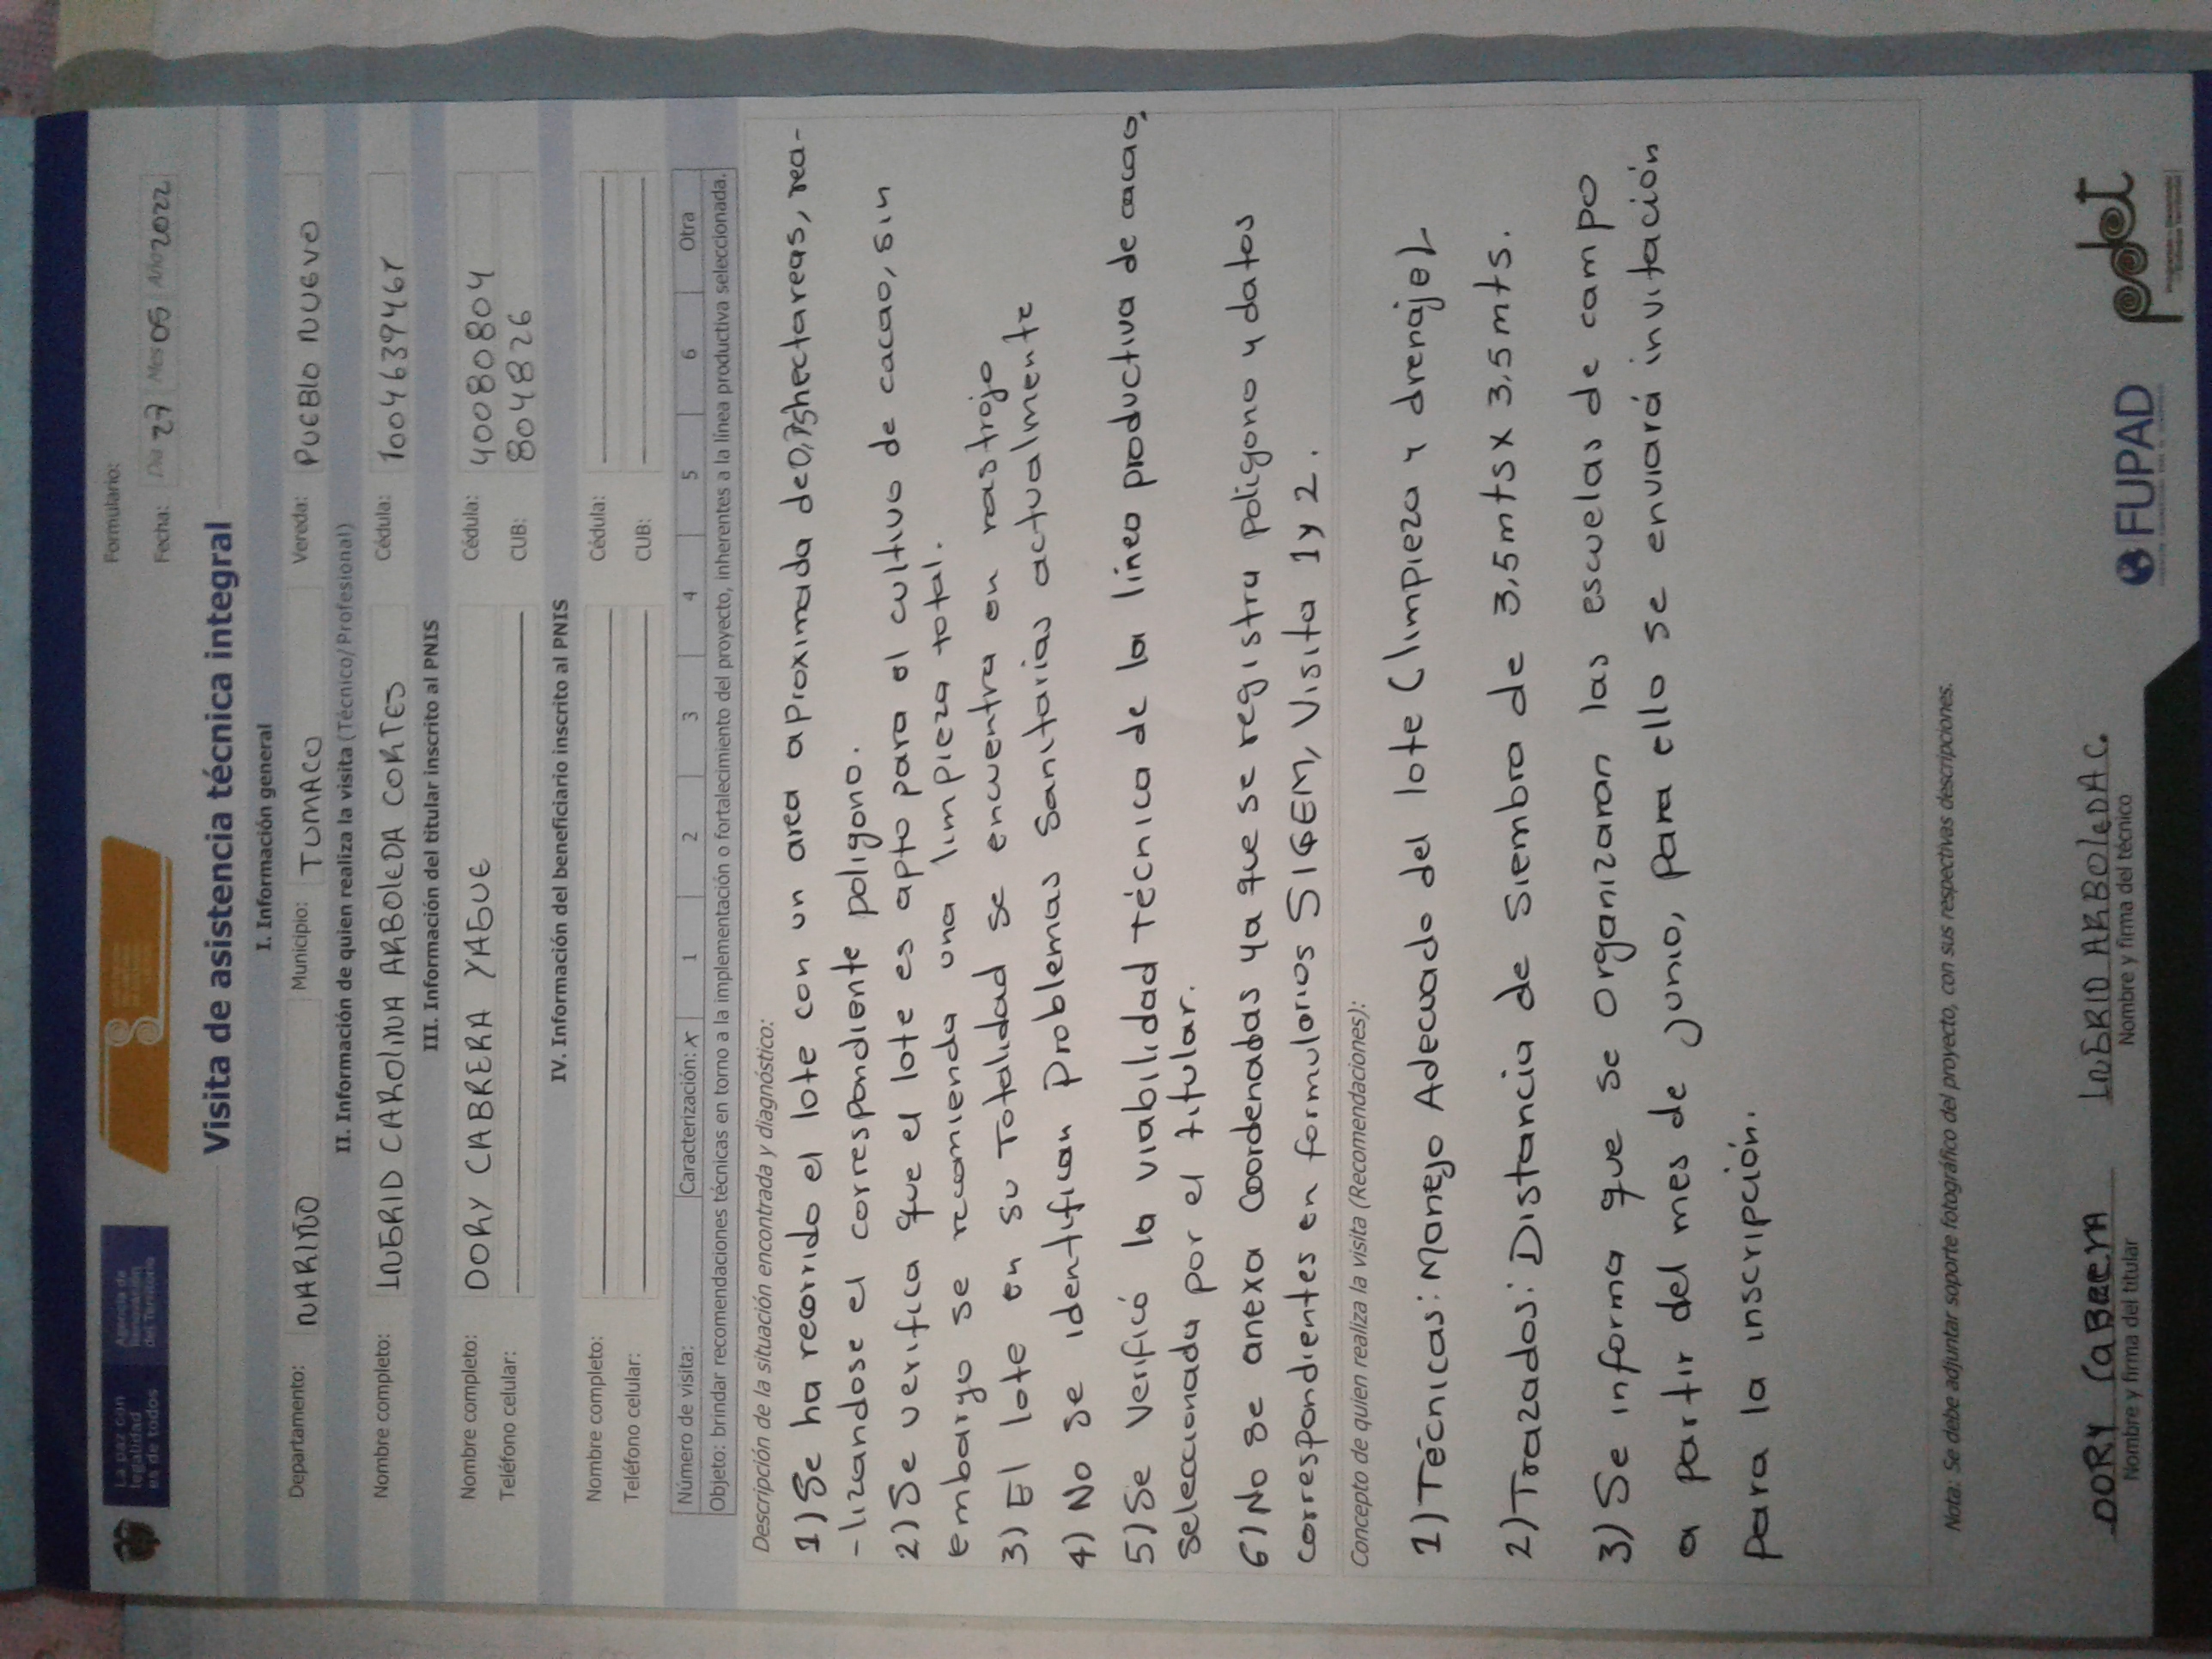 La paz con legalidad es de todos
Agencia de Renovación del Territorio
Formulario:
Fecha: Día 27 Mes 05 Año 2022
Visita de asistencia técnica integral
I. Información general
Departamento: NARIÑO Municipio: TUMACO Vereda: PUEBLO NUEVO
II. Información de quien realiza la visita (Técnico/ Profesional)
Nombre completo: INGRID CAROLINA ARBOLEDA CORTES Cédula:
III. Información del titular inscrito al PNIS
Nombre completo: DORY CABRERA YAGUE Cédula: 40080804
Teléfono celular: CUB: 804826
IV. Información del beneficiario inscrito al PNIS
Nombre completo: Cédula:
Teléfono celular: CUB:
Número de visita: Caracterización: x 1 2 3 4 5 6 Otra
Objeto: brindar recomendaciones técnicas en torno a la implementación o fortalecimiento del proyecto, inherentes a la línea productiva seleccionada.
Descripción de la situación encontrada y diagnóstico:
1) Se ha recorrido el lote con un area aproximada de 0,75 hectareas, rea-
-lizandose el correspondiente poligono.
2) Se verifica que el lote es apto para el cultivo de cacao, sin
embargo se recomienda una limpieza total.
3) El lote en su Totalidad se encuentra en rastrojo
4) No se identifican Problemas Sanitarias actualmente
5) Se Verificó la viabilidad técnica de la línea productiva de cacao,
Seleccionada por el titular.
6) No se anexa Coordenadas ya que se registra poligono y datos
correspondientes en formularios SIGEM, Visita 1 y 2.
Concepto de quien realiza la visita (Recomendaciones):
1) Técnicas: Manejo Adecuado del lote (limpieza y drenaje)
2) Trazados: Distancia de Siembra de 3,5 mts x 3,5 mts.
3) Se informa que se organizaran las escuelas de campo
a partir del mes de junio, para ello se enviará invitación
para la inscripción.
Nota: Se debe adjuntar soporte fotográfico del proyecto, con sus respectivas descripciones.
DORY CABRERA INGRID ARBOLEDA C.
Nombre y firma del titular Nombre y firma del técnico
FUPAD pdet